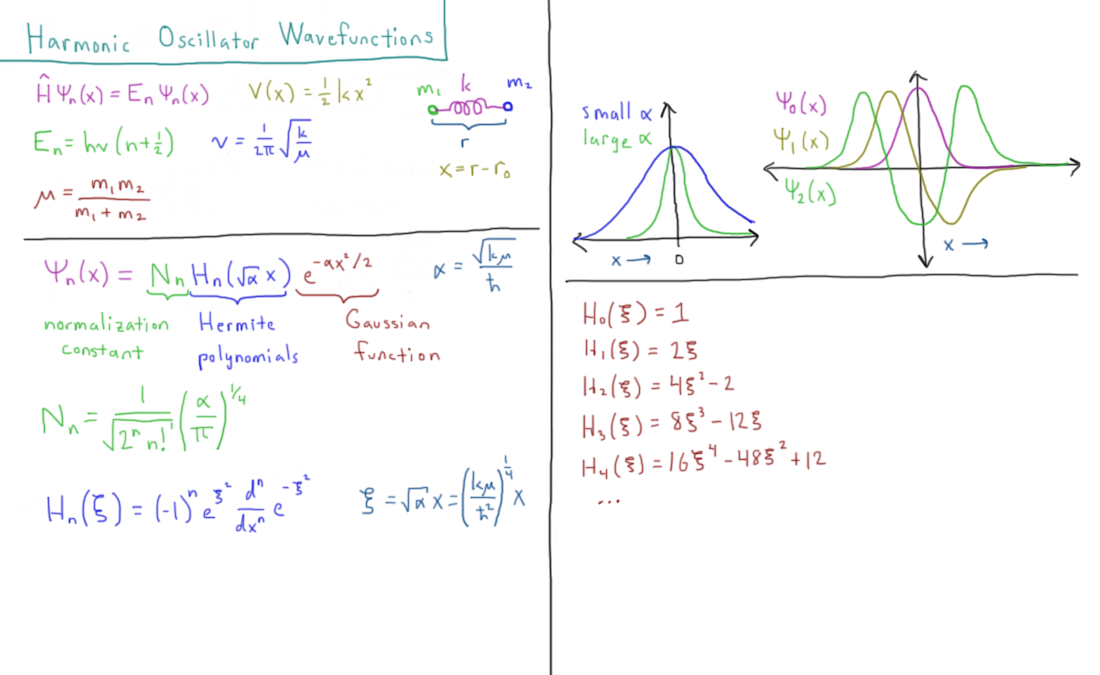 Harmonic Oscillator Wavefunctions
Ĥ Ψₙ(x) = Eₙ Ψₙ(x)
V(x) = ½ kx²
m₁ k m₂
r
x = r - r₀
Eₙ = hν (n+½)
ν = 1/2π √(k/μ)
μ = m₁m₂/(m₁ + m₂)
Ψₙ(x) = Nₙ Hₙ(√α x) e^(-αx²/2)
α = √(kμ)/ħ
normalization constant
Hermite polynomials
Gaussian function
Nₙ = 1/√(2ⁿ n!) (α/π)^(1/4)
Hₙ(ξ) = (-1)ⁿ e^(ξ²) dⁿ/dxⁿ e^(-ξ²)
ξ = √α x = (kμ/ħ²)^(1/4) x
small α
large α
x → 0
Ψ₀(x)
Ψ₁(x)
Ψ₂(x)
x →
H₀(ξ) = 1
H₁(ξ) = 2ξ
H₂(ξ) = 4ξ² - 2
H₃(ξ) = 8ξ³ - 12ξ
H₄(ξ) = 16ξ⁴ - 48ξ² + 12
...